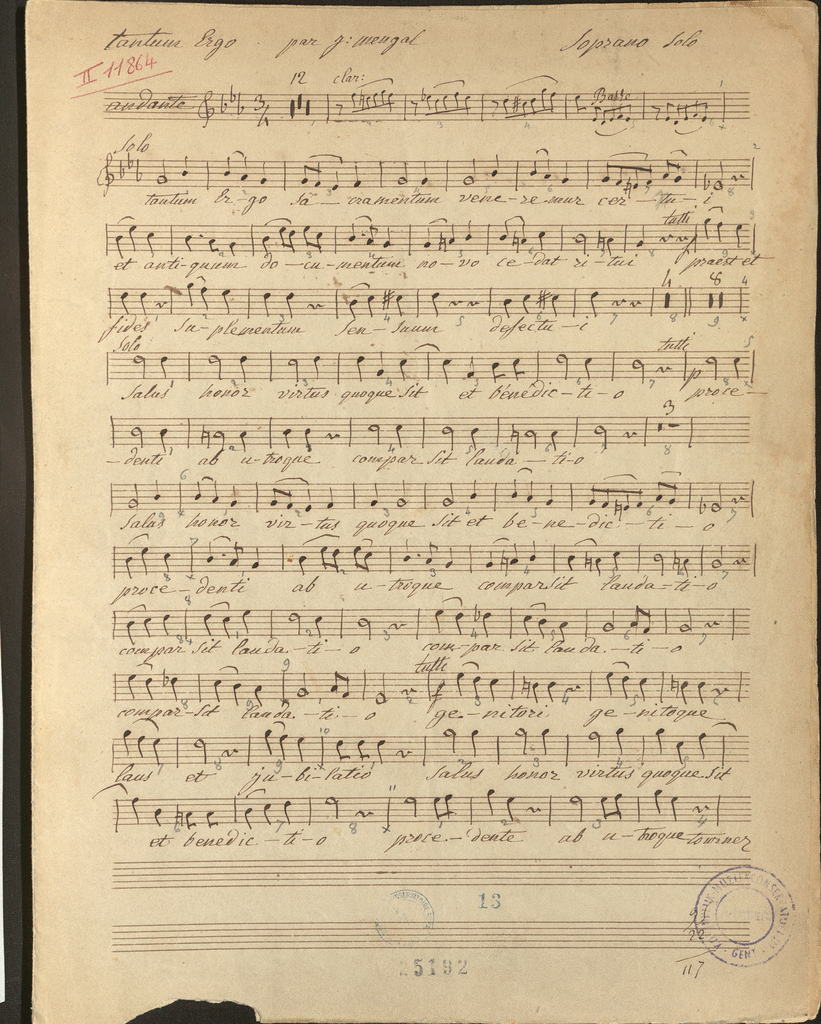 tantum Ergo par g: mengal Soprano Solo
II 11864
12 clar:
andante 3/4 Basse
Solo
tantum Er-go Sa-cramentum vene-re mur cer-tu-i
tutti
et anti-quum do-cu-mentum no-vo ce-dat ri-tui praest et
4 8
fides Su-plementum Sen-Suum defectu-i
Solo tutti
Salus honor virtus quoque Sit et benedic-ti-o p proce-
3
-denti ab u-troque compar Sit lauda-ti-o
Salus honor vir-tus quoque Sit et be-ne-dic-ti-o
proce-denti ab u-troque compar Sit lauda-ti-o
compar Sit lauda-ti-o com-par Sit lau da-ti-o
tutti
compar-Sit lauda-ti-o ge-nitori ge-nitoque
laus et ju-bi-latio Salus honor virtus quoque Sit
et benedic-ti-o proce-dente ab u-troque tournez
13
25192
GENT
117